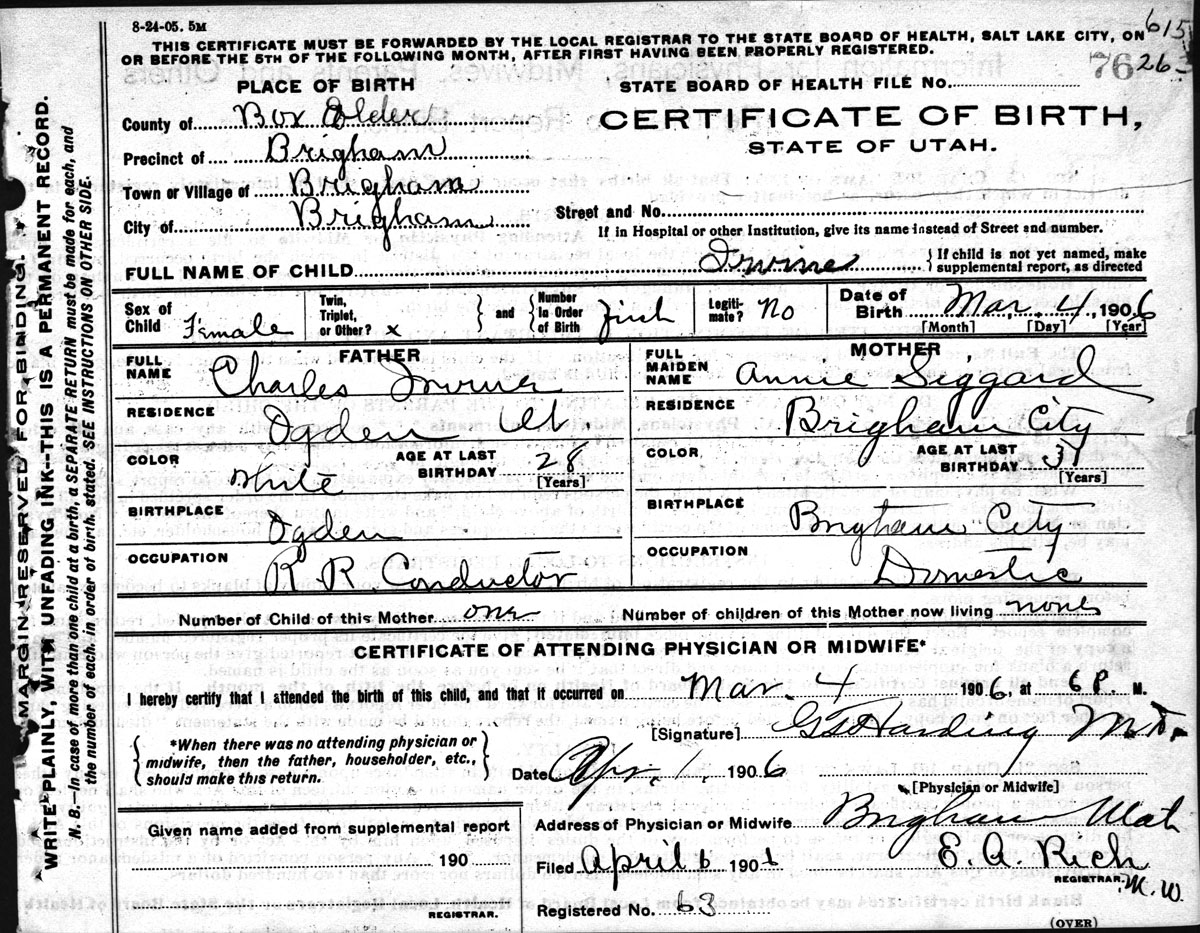 8-24-05. 5M
THIS CERTIFICATE MUST BE FORWARDED BY THE LOCAL REGISTRAR TO THE STATE BOARD OF HEALTH, SALT LAKE CITY, ON
OR BEFORE THE 5TH OF THE FOLLOWING MONTH, AFTER FIRST HAVING BEEN PROPERLY REGISTERED.
615
76 26
PLACE OF BIRTH
STATE BOARD OF HEALTH FILE No.
County of Box Elder
CERTIFICATE OF BIRTH,
Precinct of Brigham
STATE OF UTAH.
Town or Village of Brigham
City of Brigham
Street and No.
If in Hospital or other Institution, give its name instead of Street and number.
FULL NAME OF CHILD Irvine { If child is not yet named, make
supplemental report, as directed
Sex of Child Female
Twin, Triplet, or Other? x } and { Number In Order of Birth first
Legitimate? No
Date of Birth Mar. 4, 1906
[Month] [Day] [Year]
FATHER
FULL NAME Charles
RESIDENCE Ogden Ut
COLOR White
AGE AT LAST BIRTHDAY 28
[Years]
BIRTHPLACE Ogden
OCCUPATION R R Conductor
MOTHER
FULL MAIDEN NAME Annie Siggard
RESIDENCE Brigham City
COLOR
AGE AT LAST BIRTHDAY 31
[Years]
BIRTHPLACE Brigham City
OCCUPATION Domestic
Number of Child of this Mother one
Number of children of this Mother now living none
CERTIFICATE OF ATTENDING PHYSICIAN OR MIDWIFE*
I hereby certify that I attended the birth of this child, and that it occurred on Mar. 4 1906, at 6 P. M.
{ *When there was no attending physician or
midwife, then the father, householder, etc.,
should make this return. }
[Signature] Harding M.D.
Date Apr. 1. 1906
[Physician or Midwife]
Given name added from supplemental report
190
REGISTRAR.
Address of Physician or Midwife Brigham Utah
Filed April 6 190 E. A. Rich
REGISTRAR. M.W.
Registered No. 63
(OVER)
MARGIN RESERVED FOR BINDING.
WRITE PLAINLY, WITH UNFADING INK--THIS IS A PERMANENT RECORD.
N. B.—In case of more than one child at a birth, a SEPARATE RETURN must be made for each, and
the number of each, in order of birth, stated. SEE INSTRUCTIONS ON OTHER SIDE.